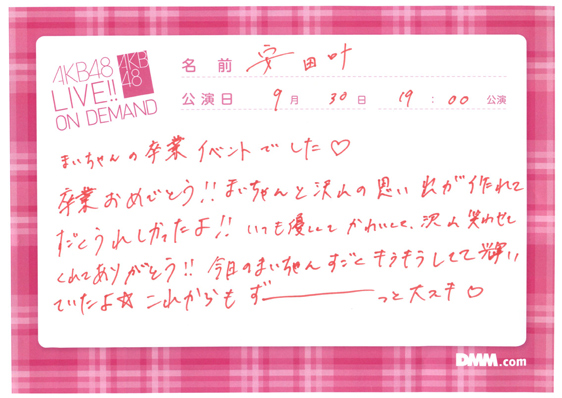 AKB48
LIVE!!
ON DEMAND
AKB
48
名前 安田叶
公演日 9月 30日 19:00 公演
まいちゃんの卒業イベントでした♡
卒業おめでとう!!まいちゃんと沢山の思い出が作れて
すごくうれしかったよ!!いつも優しくてかわいくて、沢山笑わせて
くれてありがとう!!今日のまいちゃんすごときらきらしてて輝い
ていたよ☆これからもずーーっと大スキ♡
DMM.com